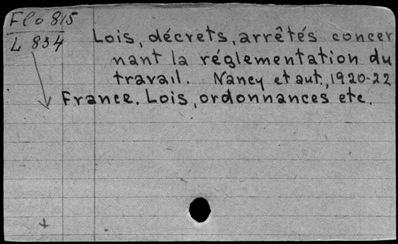 Flo 815
L 834
Lois, décrets, arrêtés concer
nant la réglementation du
travail. Nancy et aut, 1920-22
France. Lois, ordonnances etc.